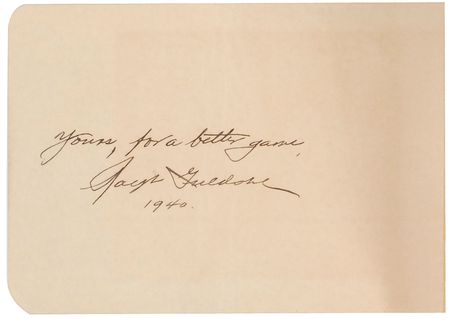 Yours, for a better game,
Ralph Guldahl
1940.